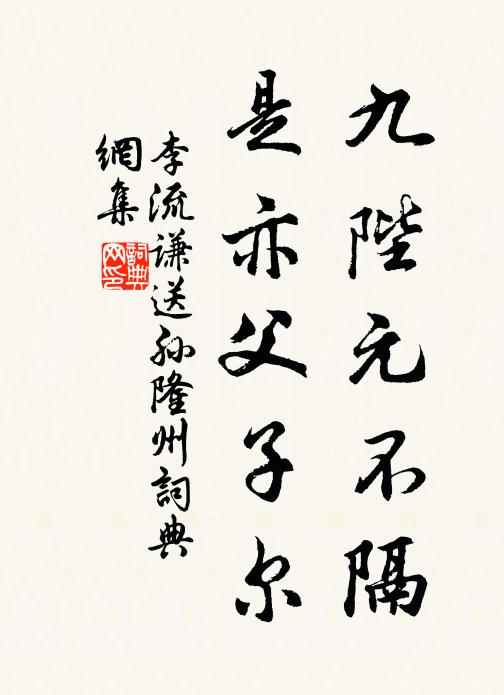 九陛元不隔
是亦父子尔
李流谦送孙隆州詞典
網集
詞典网印